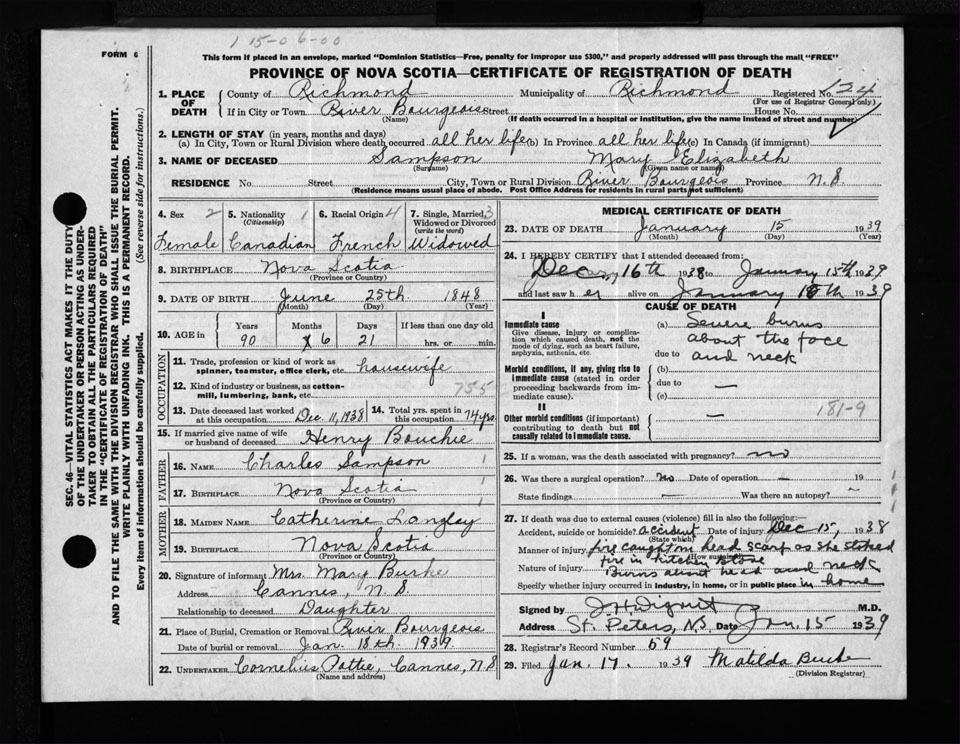 1 15-0 6-00
FORM 6
This form if placed in an envelope, marked "Dominion Statistics—Free, penalty for improper use $300," and properly addressed will pass through the mail "FREE"
PROVINCE OF NOVA SCOTIA—CERTIFICATE OF REGISTRATION OF DEATH
1. PLACE OF DEATH County of Richmond Municipality of Richmond Registered No. 124
(For use of Registrar General only)
If in City or Town River Bourgeois Street House No.
(Name) (If death occurred in a hospital or institution, give the name instead of street and number)
2. LENGTH OF STAY (in years, months and days)
(a) In City, Town or Rural Division where death occurred all her life (b) In Province all her life (c) In Canada (if immigrant)
3. NAME OF DECEASED Sampson Mary Elizabeth
(Surname) (Given name or names)
RESIDENCE No. Street City, Town or Rural Division River Bourgeois Province N.S.
(Residence means usual place of abode. Post Office Address for residents in rural parts not sufficient)
4. Sex 2 5. Nationality 1 6. Racial Origin 4 7. Single, Married, 3
Widowed or Divorced
(write the word)
Female Canadian French Widowed
8. BIRTHPLACE Nova Scotia
(Province or Country)
9. DATE OF BIRTH June 25th 1848
(Month) (Day) (Year)
10. AGE in Years Months Days If less than one day old
90 6 21 hrs. or min.
OCCUPATION
11. Trade, profession or kind of work as
spinner, teamster, office clerk, etc. housewife
12. Kind of industry or business, as cotton-
mill, lumbering, bank, etc. 755
13. Date deceased last worked
at this occupation Dec. 11, 1938
14. Total yrs. spent in
this occupation 74 yrs.
15. If married give name of wife
or husband of deceased Henry Bouchie
FATHER
16. NAME Charles Sampson 1
17. BIRTHPLACE Nova Scotia 1
(Province or Country)
MOTHER
18. MAIDEN NAME Catherine Langley
19. BIRTHPLACE Nova Scotia
(Province or Country)
20. Signature of informant Mrs. Mary Burke
Address Cannes, N.S.
Relationship to deceased Daughter
21. Place of Burial, Cremation or Removal River Bourgeois
Date of burial or removal Jan. 18th. 1939.
22. UNDERTAKER Cornelius Pottie, Cannes, N.S
(Name and address)
MEDICAL CERTIFICATE OF DEATH
23. DATE OF DEATH January 15 1939
(Month) (Day) (Year)
24. I HEREBY CERTIFY that I attended deceased from:
Dec. 16th 1938 to January 15th 1939
and last saw her alive on January 15th 1939
CAUSE OF DEATH
I
Immediate cause
Give disease, injury or complica-
tion which caused death, not the
mode of dying, such as heart failure,
asphyxia, asthenia, etc.
(a) Severe burns
about the face
due to and neck
Morbid conditions, if any, giving rise to
immediate cause (stated in order
proceeding backwards from im-
mediate cause).
(b)
due to —
(c)
II
Other morbid conditions (if important)
contributing to death but not
causally related to immediate cause.
—
181-9
25. If a woman, was the death associated with pregnancy? no
26. Was there a surgical operation? No Date of operation — 19
State findings — Was there an autopsy? ~
27. If death was due to external causes (violence) fill in also the following:—
Accident, suicide or homicide? accident Date of injury Dec 15, 1938
(State which)
Manner of injury fire caught on head scarf as she stoked
(How sustained)
fire in kitchen stove
Nature of injury Burns about head and neck
Specify whether injury occurred in industry, in home, or in public place in home
Signed by M.D.
Address St. Peters, N.S. Date Jan. 15 1939
28. Registrar's Record Number 59
29. Filed Jan. 17. 1939 Matilda Burke
(Division Registrar)
SEC. 46—VITAL STATISTICS ACT MAKES IT THE DUTY
OF THE UNDERTAKER OR PERSON ACTING AS UNDER-
TAKER TO OBTAIN ALL THE PARTICULARS REQUIRED
IN THE "CERTIFICATE OF REGISTRATION OF DEATH"
AND TO FILE THE SAME WITH THE DIVISION REGISTRAR WHO SHALL ISSUE THE BURIAL PERMIT.
WRITE PLAINLY WITH UNFADING INK. THIS IS A PERMANENT RECORD.
Every item of information should be carefully supplied. (See reverse side for instructions.)